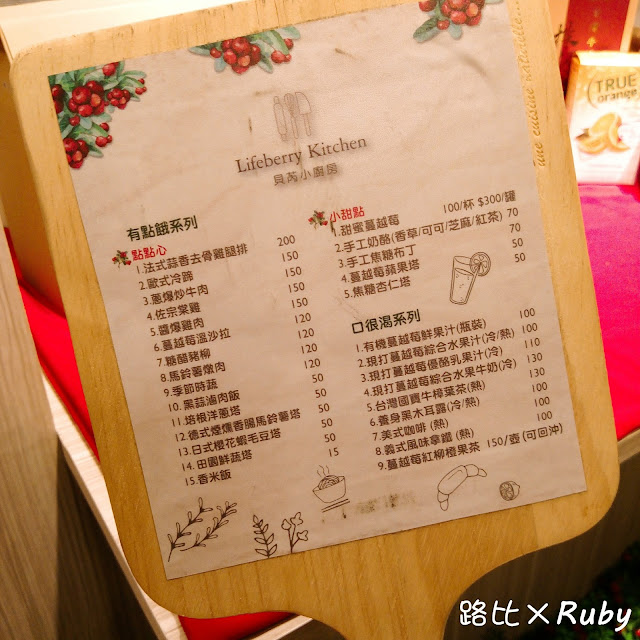 Lifeberry Kitchen
貝芮小廚房
有點餓系列
點點心
1.法式蒜香去骨雞腿排 200
2.歐式冷蹄 150
3.蔥爆炒牛肉 150
4.佐宗棠雞 150
5.醬爆雞肉 150
6.蔓越莓溫沙拉 120
7.糖醋豬柳 120
8.馬鈴薯燉肉 120
9.季節時蔬 50
10.黑蒜滷肉飯 50
11.培根洋蔥塔 50
12.德式煙燻香腸馬鈴薯塔 50
13.日式櫻花蝦毛豆塔 50
14.田園鮮蔬塔 50
15.香米飯 15
小甜點
1.甜蜜蔓越莓 100/杯 $300/罐
2.手工奶酪(香草/可可/芝麻/紅茶) 70
3.手工焦糖布丁 70
4.蔓越莓蘋果塔 50
5.焦糖杏仁塔 50
口很渴系列
1.有機蔓越莓鮮果汁(瓶裝) 100
2.現打蔓越莓綜合水果汁(冷/熱) 100
3.現打蔓越莓優酪乳果汁(冷) 110
4.現打蔓越莓綜合水果牛奶(冷) 130
5.台灣國寶牛樟葉茶(熱) 130
6.養身黑木耳露(冷/熱) 100
7.美式咖啡(熱) 100
8.義式風味拿鐵(熱) 100
9.蔓越莓紅柳橙果茶 150/壺(可回沖)
TRUE
orange
路比×Ruby